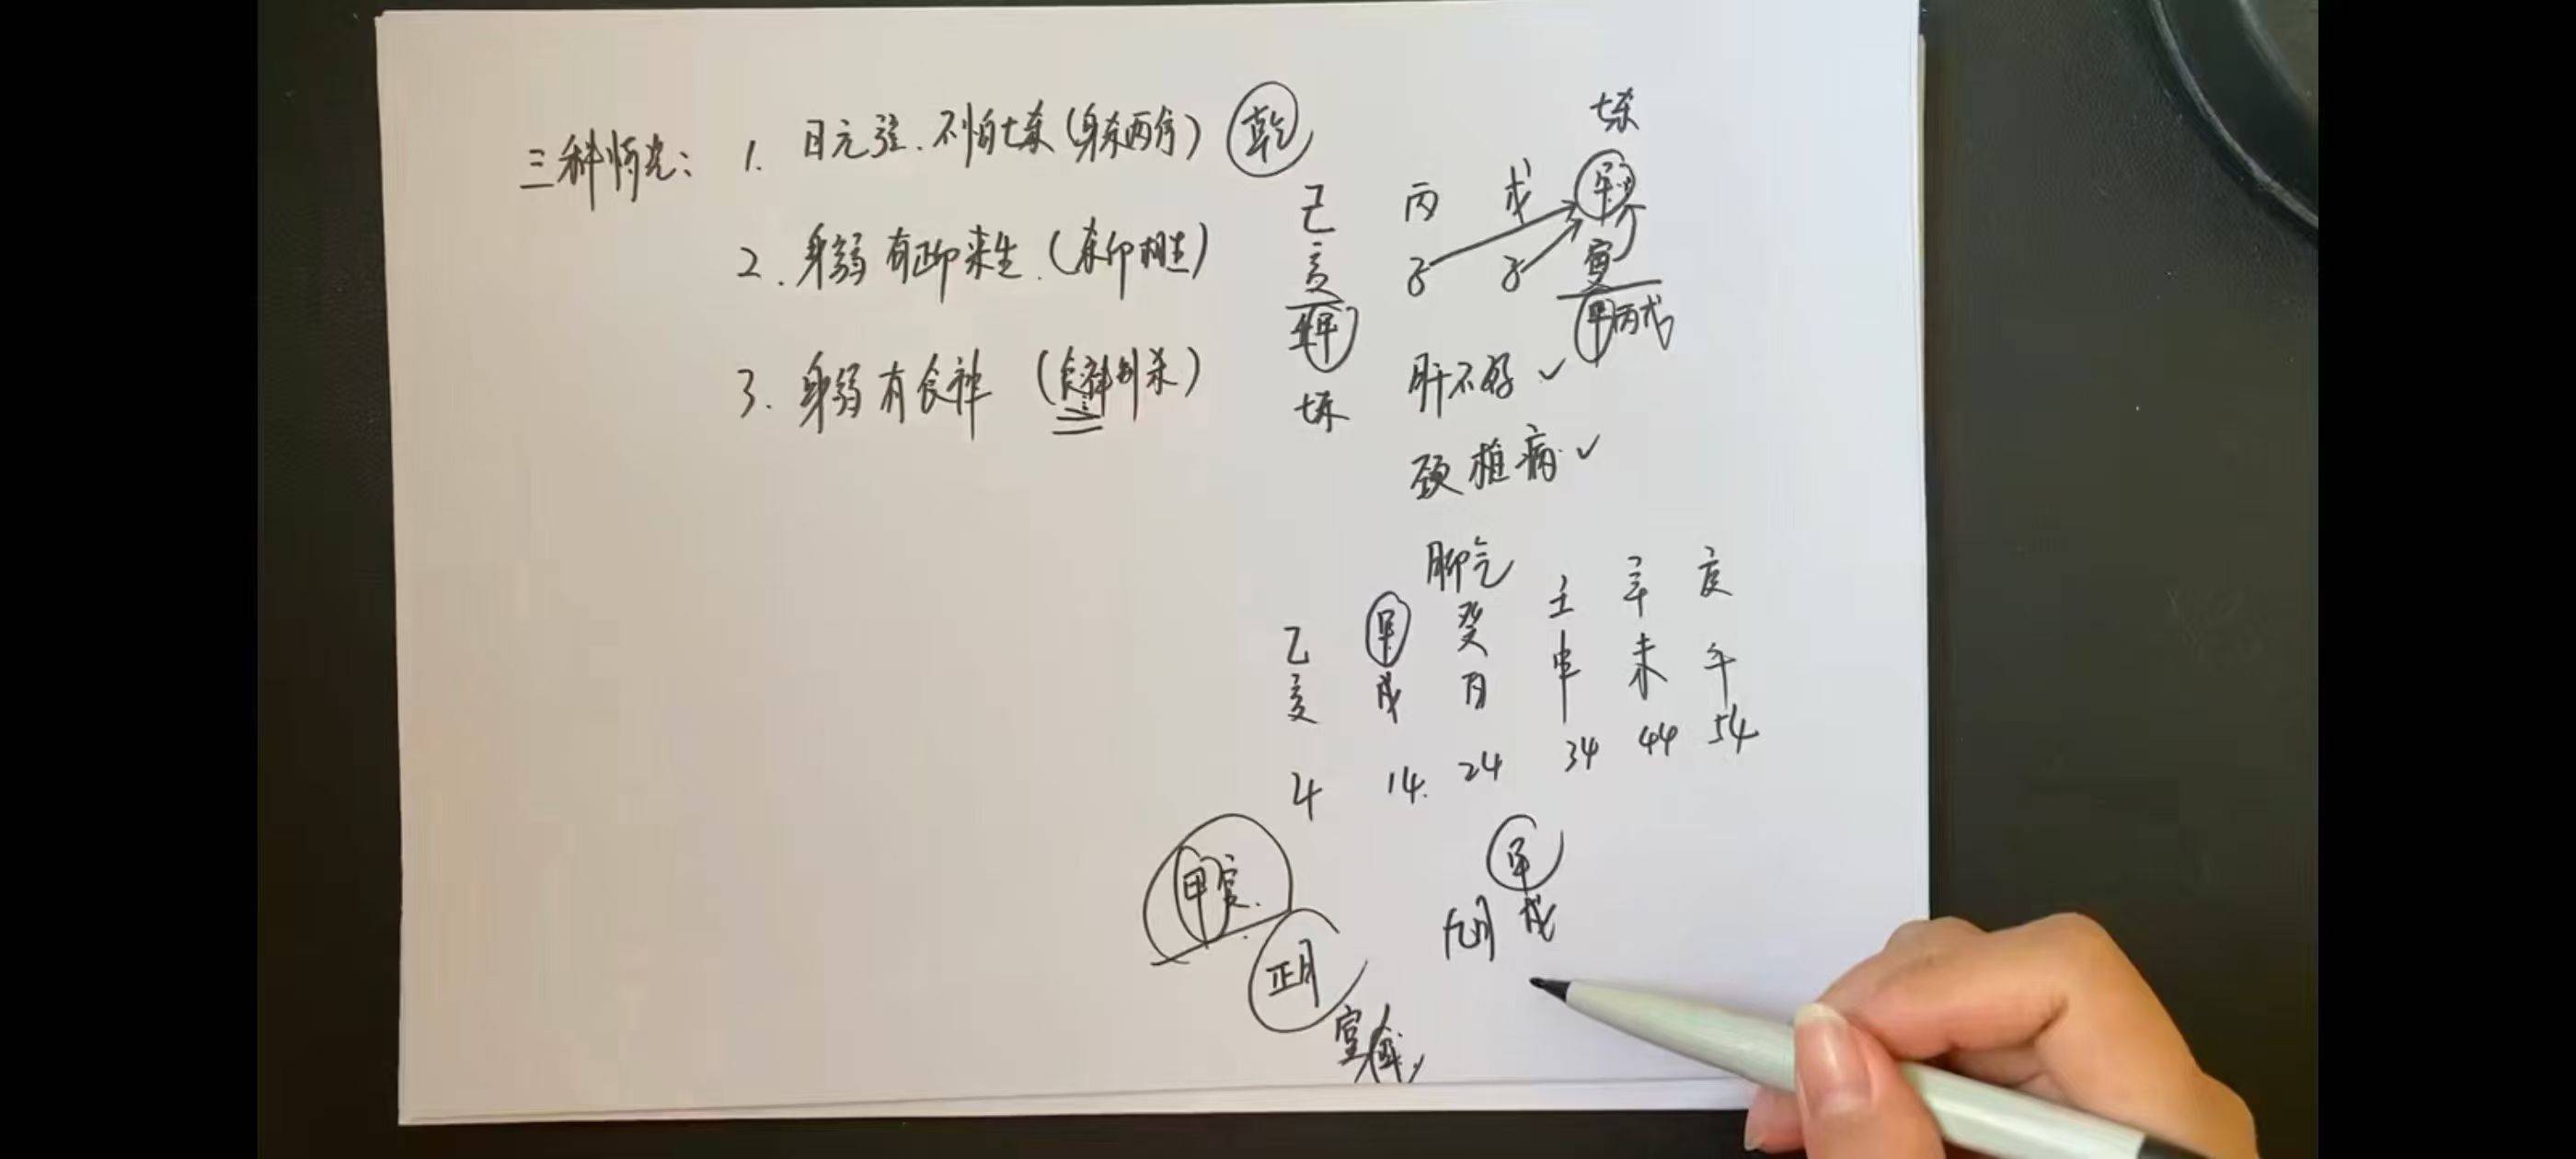 三种情况: 1. 日元强.不怕七杀(身杀两停) 乾
2. 身弱有正印来生.(杀印相生)
3. 身弱有食神 (食神制杀)
七杀
己 丙 戊 甲
亥 子 子 寅
壬甲 甲丙戊
七杀
肝不好 ✓
颈椎病 ✓
乙 甲 癸 壬 辛
亥 戌 酉 申 未 午
4 14. 24 34 44 54
甲寅.
正月
甲
九月 戌